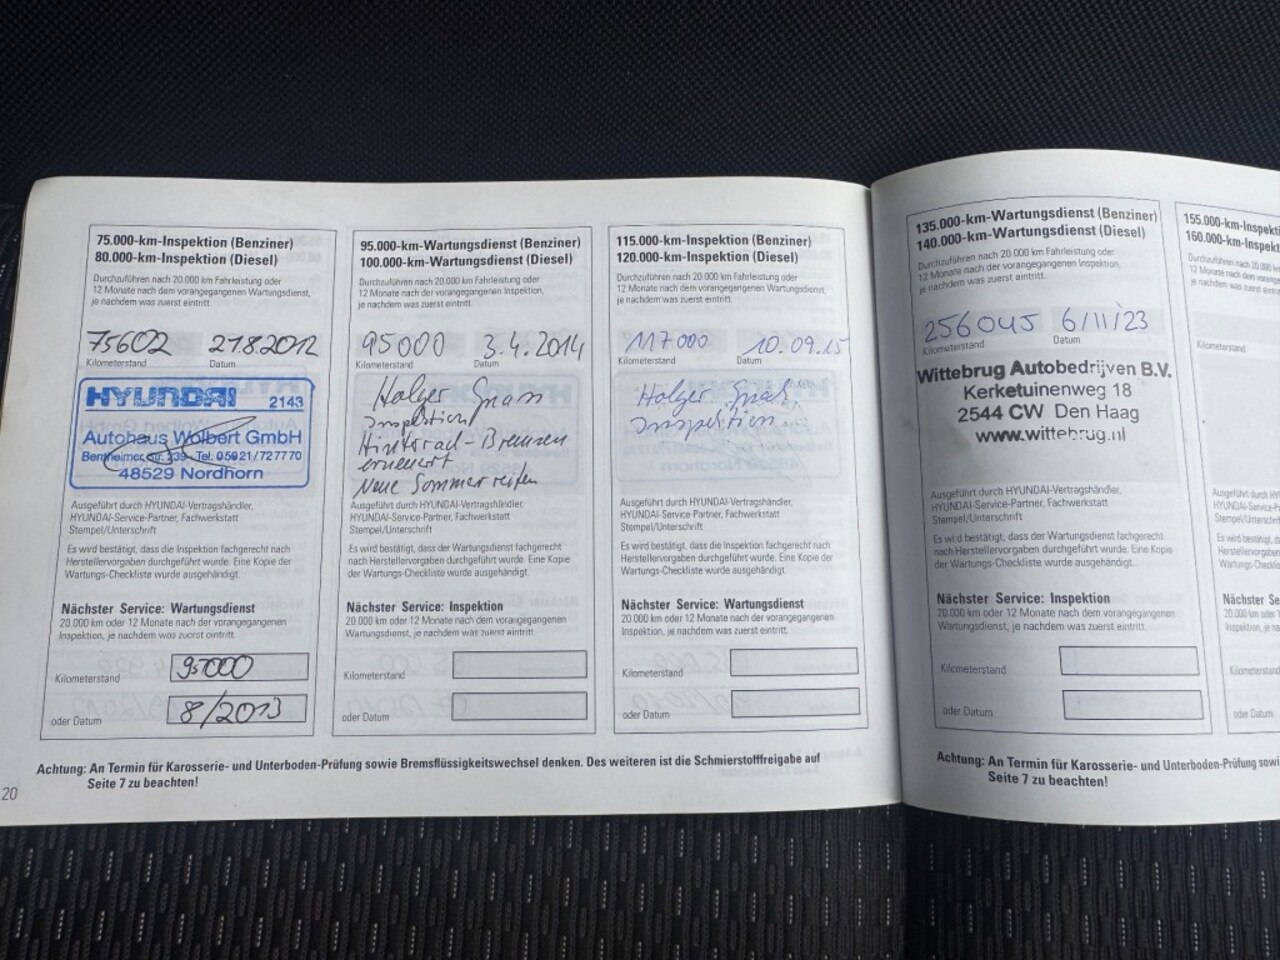 75.000-km-Inspektion (Benziner)
80.000-km-Inspektion (Diesel)
Durchzuführen nach 20.000 km Fahrleistung oder
12 Monate nach dem vorangegangenen Wartungsdienst,
je nachdem was zuerst eintritt.
75602 21.8.2012
Kilometerstand Datum
HYUNDAI 2143
Autohaus Wolbert GmbH
Bentheimer Str. 239 · Tel. 05921/727770
48529 Nordhorn
Ausgeführt durch HYUNDAI-Vertragshändler,
HYUNDAI-Service-Partner, Fachwerkstatt
Stempel/Unterschrift
Es wird bestätigt, dass die Inspektion fachgerecht nach
Herstellervorgaben durchgeführt wurde. Eine Kopie der
Wartungs-Checkliste wurde ausgehändigt.
Nächster Service: Wartungsdienst
20.000 km oder 12 Monate nach der vorangegangenen
Inspektion, je nachdem was zuerst eintritt.
Kilometerstand 95000
oder Datum 8/2013
95.000-km-Wartungsdienst (Benziner)
100.000-km-Wartungsdienst (Diesel)
Durchzuführen nach 20.000 km Fahrleistung oder
12 Monate nach der vorangegangenen Inspektion,
je nachdem was zuerst eintritt.
95000 3.4.2014
Kilometerstand Datum
Holger
Inspektion
Hinterrad-Bremsen
erneuert
Neue Sommerreifen
Ausgeführt durch HYUNDAI-Vertragshändler,
HYUNDAI-Service-Partner, Fachwerkstatt
Stempel/Unterschrift
Es wird bestätigt, dass der Wartungsdienst fachgerecht
nach Herstellervorgaben durchgeführt wurde. Eine Kopie
der Wartungs-Checkliste wurde ausgehändigt.
Nächster Service: Inspektion
20.000 km oder 12 Monate nach dem vorangegangenen
Wartungsdienst, je nachdem was zuerst eintritt.
Kilometerstand
oder Datum
115.000-km-Inspektion (Benziner)
120.000-km-Inspektion (Diesel)
Durchzuführen nach 20.000 km Fahrleistung oder
12 Monate nach dem vorangegangenen Wartungsdienst,
je nachdem was zuerst eintritt.
117000 10.09.15
Kilometerstand Datum
Holger
Inspektion
Ausgeführt durch HYUNDAI-Vertragshändler,
HYUNDAI-Service-Partner, Fachwerkstatt
Stempel/Unterschrift
Es wird bestätigt, dass die Inspektion fachgerecht nach
Herstellervorgaben durchgeführt wurde. Eine Kopie der
Wartungs-Checkliste wurde ausgehändigt.
Nächster Service: Wartungsdienst
20.000 km oder 12 Monate nach der vorangegangenen
Inspektion, je nachdem was zuerst eintritt.
Kilometerstand
oder Datum
Achtung: An Termin für Karosserie- und Unterboden-Prüfung sowie Bremsflüssigkeitswechsel denken. Des weiteren ist die Schmierstofffreigabe auf
Seite 7 zu beachten!
20
135.000-km-Wartungsdienst (Benziner)
140.000-km-Wartungsdienst (Diesel)
Durchzuführen nach 20.000 km Fahrleistung oder
12 Monate nach der vorangegangenen Inspektion,
je nachdem was zuerst eintritt.
256045 6/11/23
Kilometerstand Datum
Wittebrug Autobedrijven B.V.
Kerketuinenweg 18
2544 CW Den Haag
www.wittebrug.nl
Ausgeführt durch HYUNDAI-Vertragshändler,
HYUNDAI-Service-Partner, Fachwerkstatt
Stempel/Unterschrift
Es wird bestätigt, dass der Wartungsdienst fachgerecht
nach Herstellervorgaben durchgeführt wurde. Eine Kopie
der Wartungs-Checkliste wurde ausgehändigt.
Nächster Service: Inspektion
20.000 km oder 12 Monate nach dem vorangegangenen
Wartungsdienst, je nachdem was zuerst eintritt.
Kilometerstand
oder Datum
155.000-km-Inspekti
160.000-km-Inspekt
Durchzuführen nach 20.000 km
12 Monate nach dem
je nachdem was zuerst eintritt.
Kilometerstand
Ausgeführt durch HYUNDAI-
HYUNDAI-Service-P
Stempel/Unterschrift
Es wird bestätigt, dass
Herstellervorgaben
Wartungs-Checkliste
Nächster Se
20.000 km oder 1
Inspektion, je n
Kilometerstand
oder Datum
Achtung: An Termin für Karosserie- und Unterboden-Prüfung sowi
Seite 7 zu beachten!